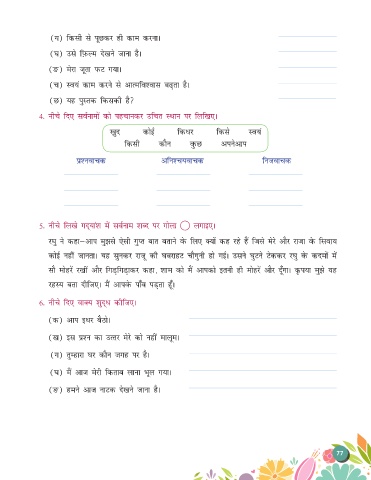 (ग) किसी से पूछकर ही काम करना।
(घ) उसे फ़िल्म देखने जाना है।
(ङ) मेरा जूता फट गया।
(च) स्वयं काम करने से आत्मविश्वास बढ़ता है।
(छ) यह पुस्तक किसकी है?
4. नीचे दिए सर्वनामों को पहचानकर उचित स्थान पर लिखिए।
खुद कोई किधर किसे स्वयं
किसी कौन कुछ अपनेआप
प्रश्नवाचक अनिश्चयवाचक निजवाचक
5. नीचे लिखे गद्यांश में सर्वनाम शब्द पर गोला लगाइए।
रघु ने कहा–आप मुझसे ऐसी गुप्त बात बताने के लिए क्यों कह रहे हैं जिसे मेरे और राजा के सिवाय
कोई नहीं जानता। यह सुनकर राजू की घबराहट चौगुनी हो गई। उसने घुटने टेककर रघु के कदमों में
सौ मोहरें रखीं और गिड़गिड़ाकर कहा, शाम को मैं आपको इतनी ही मोहरें और दूँगा। कृपया मुझे यह
रहस्य बता दीजिए। मैं आपके पाँव पड़ता हूँ।
6. नीचे दिए वाक्य शुद्ध कीजिए।
(क) आप इधर बैठो।
(ख) इस प्रश्न का उत्तर मेरे को नहीं मालूम।
(ग) तुम्हारा घर कौन जगह पर है।
(घ) मैं आज मेरी किताब लाना भूल गया।
(ङ) हमने आज नाटक देखने जाना है।
77